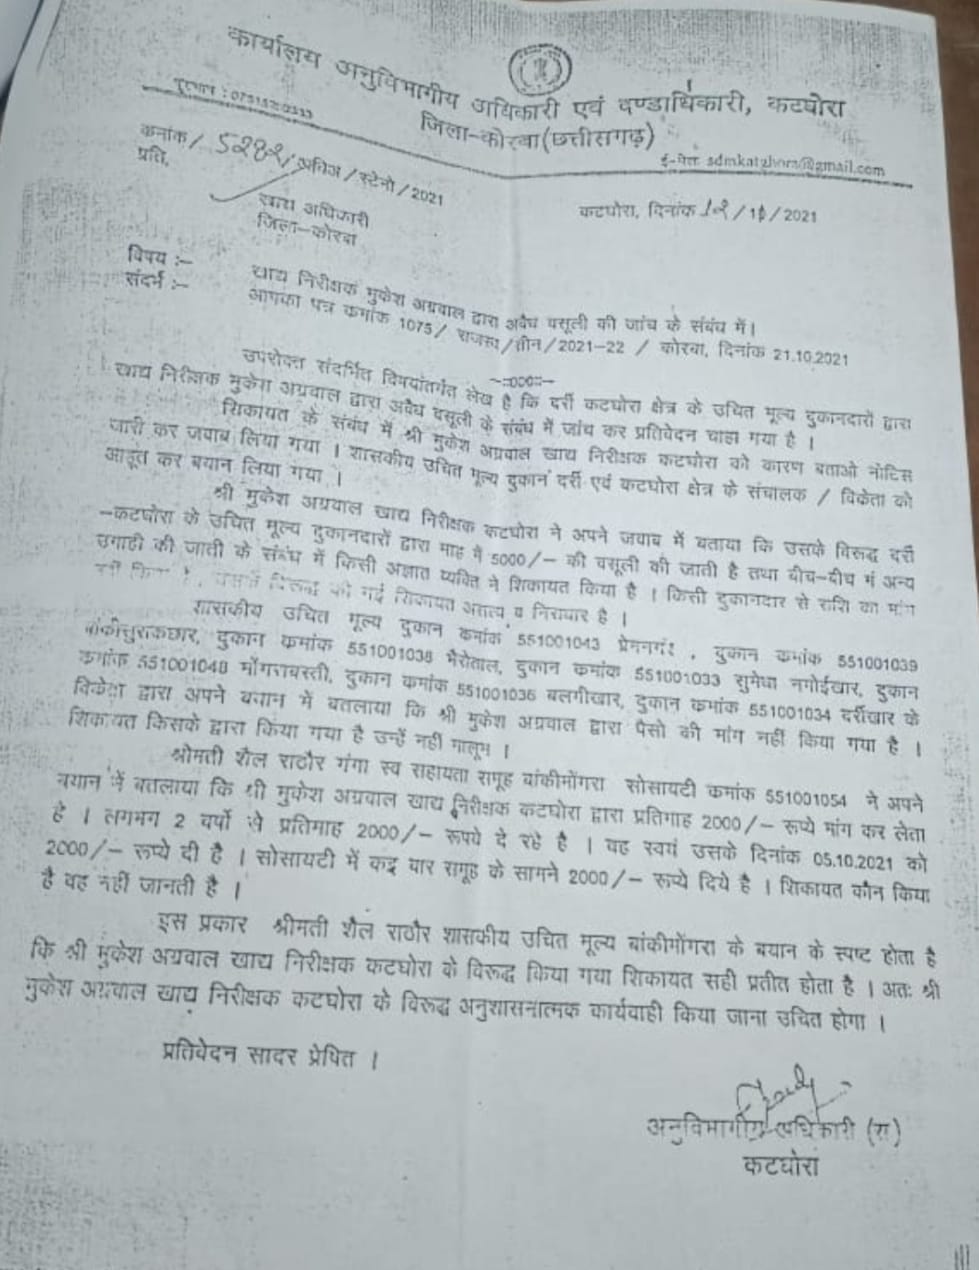 कार्यालय अनुविभागीय अधिकारी एवं दण्डाधिकारी, कटघोरा
जिला-कोरबा (छत्तीसगढ़)
दूरभाष :
ई-मेल sdmkatghora@gmail.com
कमांक / 5282 / अविअ / स्टेनो / 2021
कटघोरा, दिनांक 12/11/2021
प्रति,
खाद्य अधिकारी
जिला-कोरबा
विषय :- खाद्य निरीक्षक मुकेश अग्रवाल द्वारा अवैध वसूली की जांच के संबंध में।
संदर्भ :- आपका पत्र कमांक 1075/ राजस्व/तीन/2021-22 / कोरबा, दिनांक 21.10.2021
-::000::-
उपरोक्त संदर्भित विषयांतर्गत लेख है कि दर्री कटघोरा क्षेत्र के उचित मूल्य दुकानदारों द्वारा
खाद्य निरीक्षक मुकेश अग्रवाल द्वारा अवैध वसूली के संबंध में जांच कर प्रतिवेदन चाहा गया है ।
शिकायत के संबंध में श्री मुकेश अग्रवाल खाद्य निरीक्षक कटघोरा को कारण बताओ नोटिस
जारी कर जवाब लिया गया । शासकीय उचित मूल्य दुकान दर्री एवं कटघोरा क्षेत्र के संचालक / विकेता को
आहूत कर बयान लिया गया ।
श्री मुकेश अग्रवाल खाद्य निरीक्षक कटघोरा ने अपने जवाब में बताया कि उसके विरूद्ध दर्री
-कटघोरा के उचित मूल्य दुकानदारों द्वारा माह में 5000/- की वसूली की जाती है तथा बीच-बीच में अन्य
उगाही की जाती के संबंध में किसी अज्ञात व्यक्ति ने शिकायत किया है । किसी दुकानदार से राशि का मांग
विरूद्ध की गई शिकायत असत्य व निराधार है ।
शासकीय उचित मूल्य दुकान कमांक 551001043 प्रेमनगर, दुकान कमांक 551001039
बांकीसुराकछार, दुकान कमांक 551001038 भैरोताल, दुकान कमांक 551001033 सुमेधा नगोईखार, दुकान
कमांक 551001048 मोंगराबस्ती, दुकान कमांक 551001036 बलगीखार, दुकान कमांक 551001034 दर्रीखार के
विकेता द्वारा अपने बयान में बतलाया कि श्री मुकेश अग्रवाल द्वारा पैसो की मांग नहीं किया गया है ।
शिकायत किसके द्वारा किया गया है उन्हें नहीं मालूम ।
श्रीमती शैल राठौर गंगा स्व सहायता समूह बांकीमोंगरा सोसायटी कमांक 551001054 ने अपने
बयान में बतलाया कि श्री मुकेश अग्रवाल खाद्य निरीक्षक कटघोरा द्वारा प्रतिमाह 2000/- रूप्ये मांग कर लेता
है । लगभग 2 वर्षो से प्रतिमाह 2000/- रूपये दे रहे है । वह स्वयं उसके दिनांक 05.10.2021 को
2000/- रूप्ये दी है । सोसायटी में कइ बार समूह के सामने 2000/- रूप्ये दिये है । शिकायत कौन किया
है वह नहीं जानती है ।
इस प्रकार श्रीमती शैल राठौर शासकीय उचित मूल्य बांकीमोंगरा के बयान के स्पष्ट होता है
कि श्री मुकेश अग्रवाल खाद्य निरीक्षक कटघोरा के विरूद्ध किया गया शिकायत सही प्रतीत होता है । अतः श्री
मुकेश अग्रवाल खाद्य निरीक्षक कटघोरा के विरूद्ध अनुशासनात्मक कार्यवाही किया जाना उचित होगा ।
प्रतिवेदन सादर प्रेषित ।
अनुविभागीय अधिकारी (रा)
कटघोरा